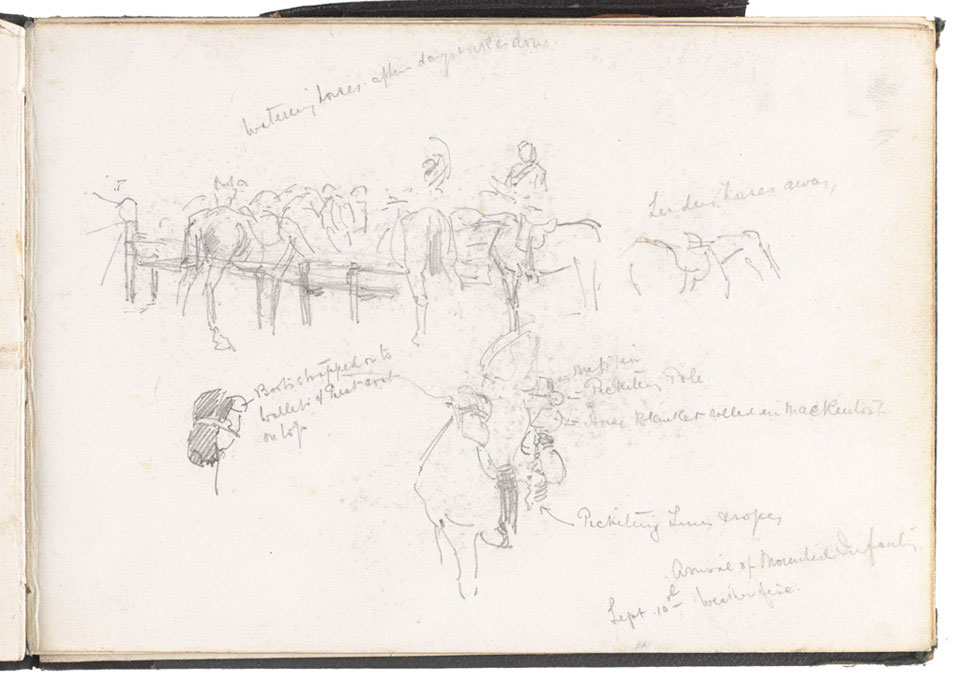 Watering horses after days work is done
Leading horses away
Boots strapped on to
Wallets & Great coat
on top
Picketing Pole
Horse Blanket rolled in Mackintosh
Picketing Lines & ropes
Arrival of Mounted Infantry
Sept. 10th